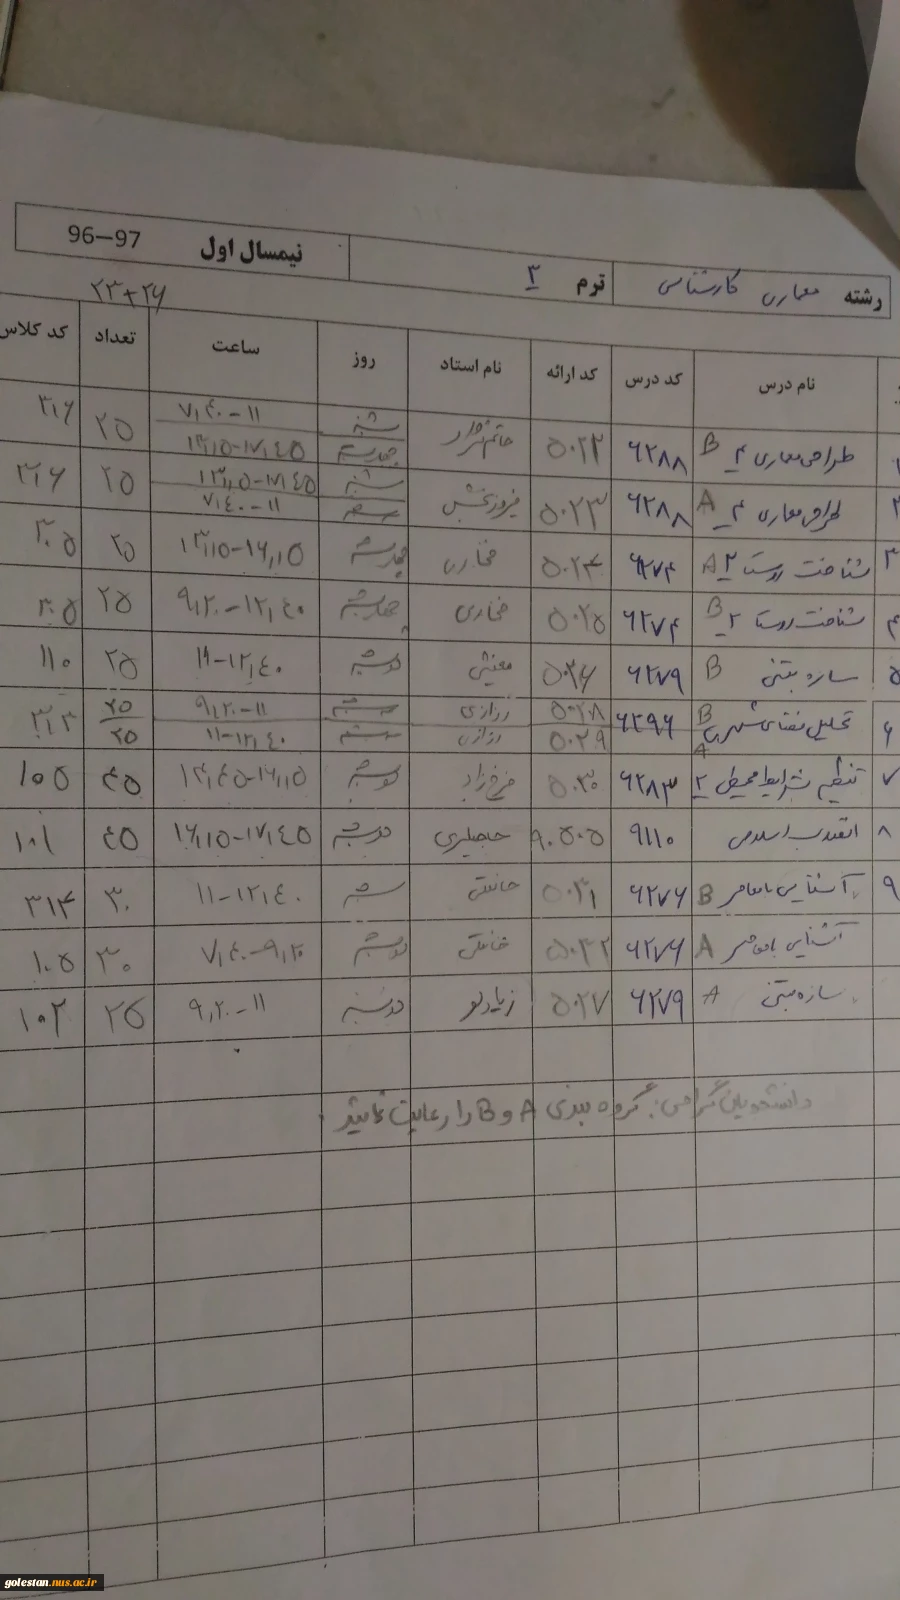 رشته معماری کارشناسی ترم ۳ نیمسال اول 96-97
۲۳+۲۶
نام درس کد درس کد ارائه نام استاد روز ساعت تعداد کد کلاس
۱ طراحی معماری ۴ B ۶۲۸۸ ۵۰۲۲ شنبه ۷,۴۰-۱۱ ۲۵ ۳۱۶
چهارشنبه ۱۳,۱۵-۱۷,۴۵
۲ طراحی معماری ۴ A ۶۲۸۸ ۵۰۲۳ فیروزبخش شنبه ۱۳,۱۵-۱۷,۴۵ ۲۵ ۳۱۶
۷,۴۰-۱۱
۳ شناخت روستا ۲ A ۶۲۷۴ ۵۰۲۴ فخاری چهارشنبه ۱۳,۱۵-۱۶,۱۵ ۲۵ ۳۰۵
۴ شناخت روستا ۲ B ۶۲۷۴ ۵۰۲۵ فخاری چهارشنبه ۹,۲۰-۱۲,۴۰ ۲۵ ۳۰۵
۵ سازه بتنی B ۶۲۷۹ ۵۰۲۶ دوشنبه ۱۱-۱۲,۴۰ ۲۵ ۱۱۰
۶ تحلیل فضای شهری B ۶۲۹۶ ۵۰۲۸ رزازی ۹,۲۰-۱۱ ۲۵ ۳۱۳
A ۵۰۲۹ رزازی ۱۱-۱۲,۴۰ ۲۵
۷ تنظیم شرایط محیطی ۲ ۶۲۸۳ ۵۰۳۰ فرخزاد دوشنبه ۱۴,۴۵-۱۶,۱۵ ۴۵ ۱۰۵
۸ انقلاب اسلامی ۹۱۱۰ ۹۰۵۰۵ دوشنبه ۱۶,۱۵-۱۷,۴۵ ۴۵ ۱۰۱
۹ آشنایی با معاصر B ۶۲۷۶ ۵۰۳۱ شنبه ۱۱-۱۲,۴۰ ۳۰ ۳۱۴
آشنایی با معاصر A ۶۲۷۶ ۵۰۳۲ دوشنبه ۷,۴۰-۹,۲۰ ۳۰ ۱۰۵
سازه بتنی A ۶۲۷۹ ۵۰۲۷ زیادلو دوشنبه ۹,۲۰-۱۱ ۲۵ ۱۰۲
دانشجویان گرامی: گروه بندی A و B را رعایت نمائید.
golestan.nus.ac.ir